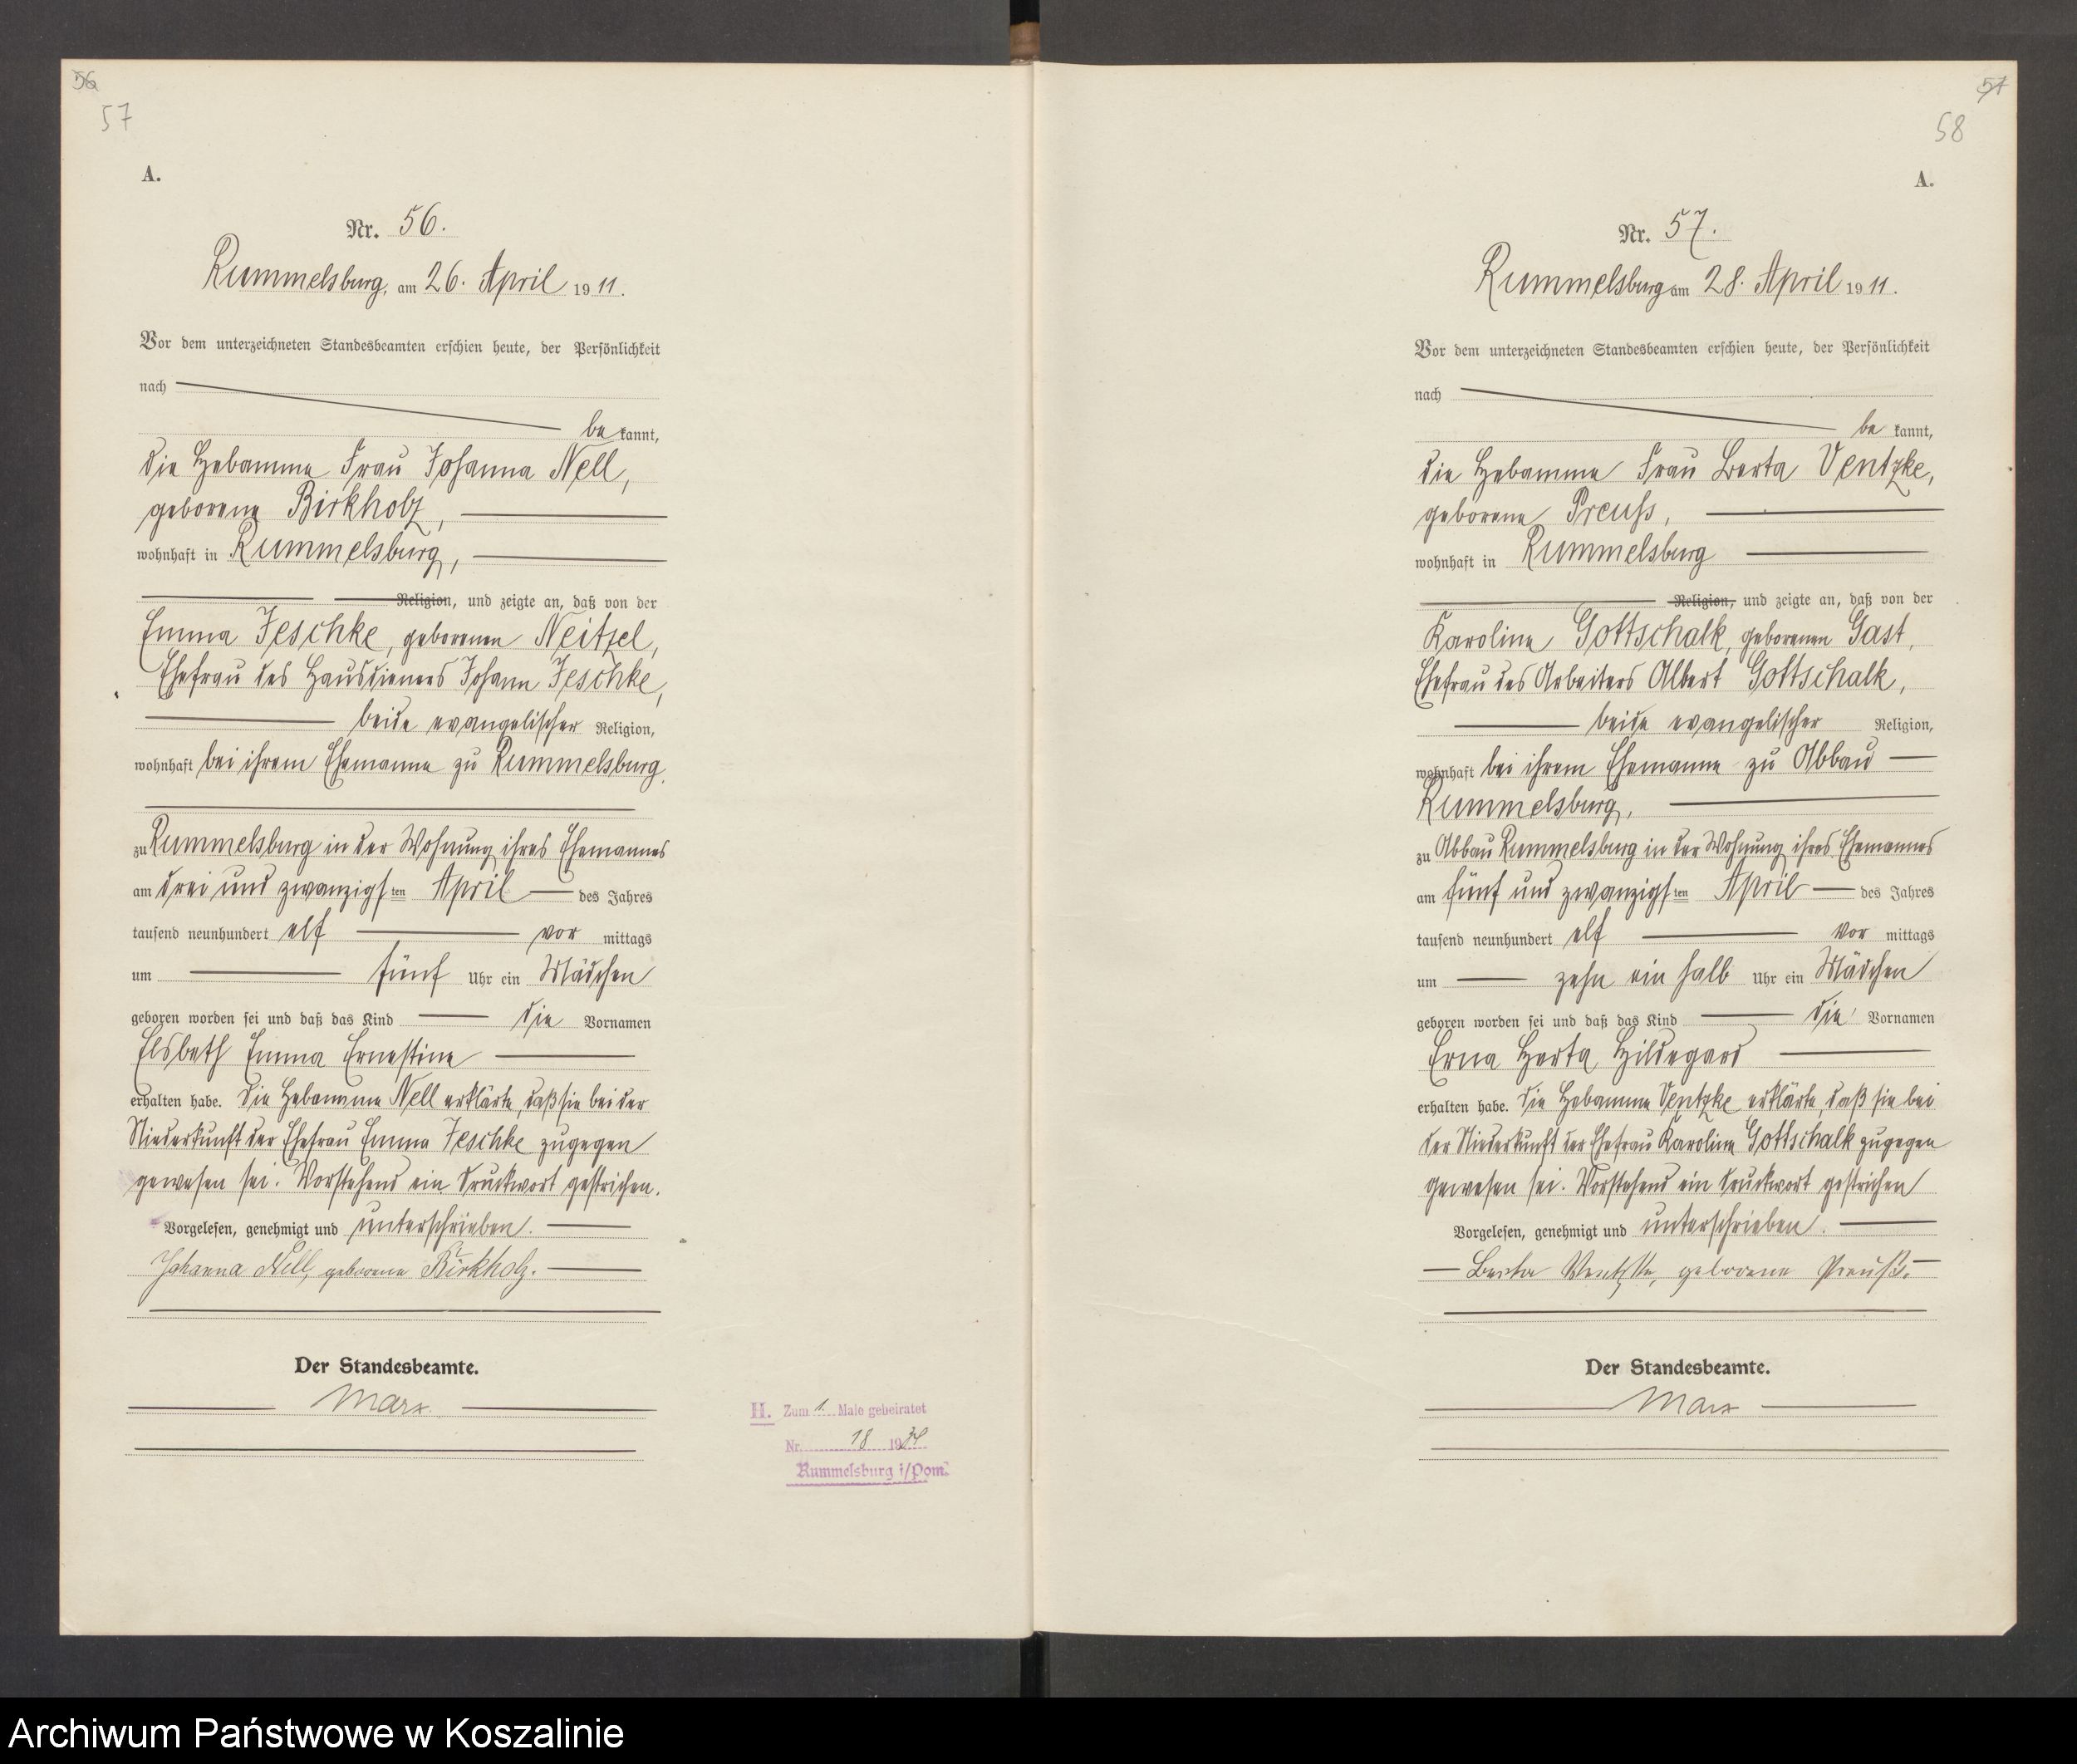 56
57
A.
Nr. 56.
Rummelsburg, am 26. April 1911.
Vor dem unterzeichneten Standesbeamten erschien heute, der Persönlichkeit
nach
be kannt,
die Hebamme Frau Johanna Nell,
geborene Birkholz,
wohnhaft in Rummelsburg,
Religion, und zeigte an, daß von der
Emma Jeschke, geborenen Neitzel,
Ehefrau des Hausdieners Johann Jeschke,
beide evangelischer Religion,
wohnhaft bei ihrem Ehemanne zu Rummelsburg,
zu Rummelsburg in der Wohnung ihres Ehemannes
am drei und zwanzigsten April des Jahres
tausend neunhundert elf vor mittags
um fünf Uhr ein Mädchen
geboren worden sei und daß das Kind die Vornamen
Elsbeth Emma Ernestine
erhalten habe. Die Hebamme Nell erklärte, daß sie bei der
Niederkunft der Ehefrau Emma Jeschke zugegen
gewesen sei. Vorstehend ein Druckwort gestrichen.
Vorgelesen, genehmigt und unterschrieben.
Johanna Nell, geborene Birkholz.
Der Standesbeamte.
Marx.
H. Zum 1. Male geheiratet
Nr. 18 1934
Rummelsburg i/Pom.
57
58
A.
Nr. 57.
Rummelsburg am 28. April 1911.
Vor dem unterzeichneten Standesbeamten erschien heute, der Persönlichkeit
nach
be kannt,
die Hebamme Frau Berta Ventzke,
geborene Preuß,
wohnhaft in Rummelsburg
Religion, und zeigte an, daß von der
Karoline Gottschalk, geborenen Gast,
Ehefrau des Arbeiters Albert Gottschalk,
beide evangelischer Religion,
wohnhaft bei ihrem Ehemanne zu Abbau
Rummelsburg,
zu Abbau Rummelsburg in der Wohnung ihres Ehemannes
am fünf und zwanzigsten April des Jahres
tausend neunhundert elf vor mittags
um zehn ein halb Uhr ein Mädchen
geboren worden sei und daß das Kind die Vornamen
Erna Herta Hildegard
erhalten habe. Die Hebamme Ventzke erklärte, daß sie bei
der Niederkunft der Ehefrau Karoline Gottschalk zugegen
gewesen sei. Vorstehend ein Druckwort gestrichen
Vorgelesen, genehmigt und unterschrieben.
Berta Ventzke, geborene Preuß.
Der Standesbeamte.
Marx
Archiwum Państwowe w Koszalinie